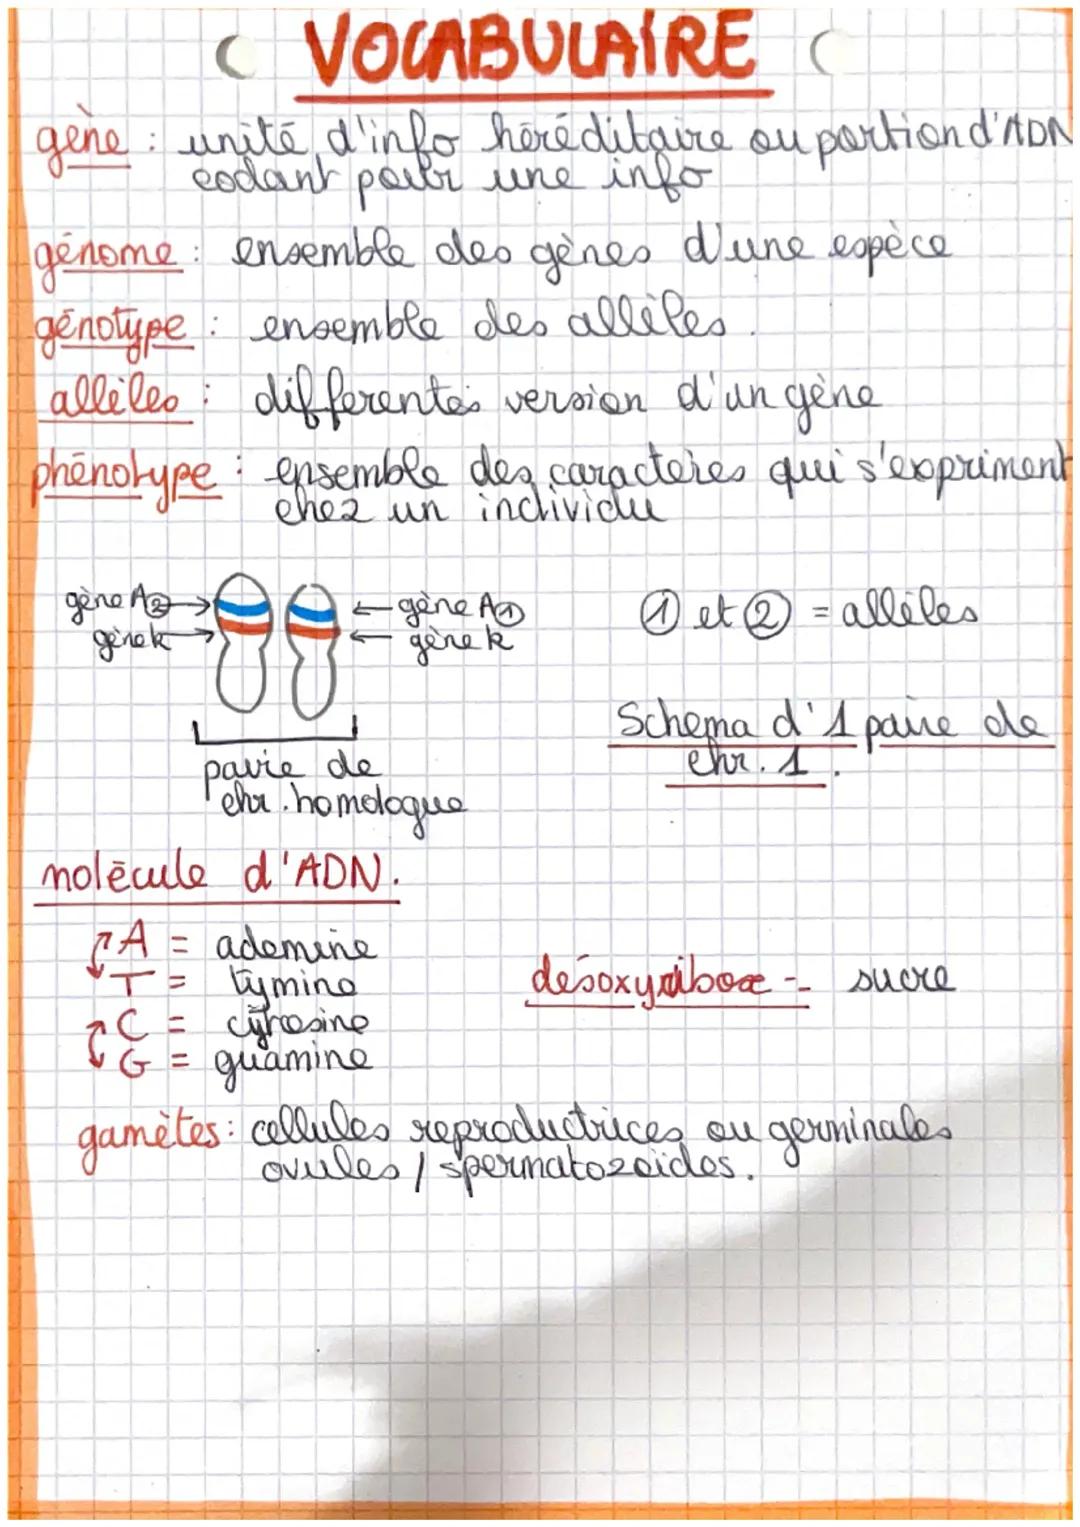 VOCABULAIRE
gène : unité d'info héréditaire ou portion d'ADN
codant pour une info
génome : ensemble des gènes d'une espèce
génotype : ensemble des allèles.
allèles : differentes version d'un gène
phénotype : ensemble des caractères qui s'expriment
chez un individu
gène A② gène A① ① et ② = allèles
gène k gène k
Schema d'1 paire de
chr. 1.
pavie de
chr. homologue
molécule d'ADN.
A = ademine
T = tymine
désoxyribose - sucre
C = cytosine
G = guamine
gamètes : cellules reproductrices ou germinales
ovules / spermatozoides.